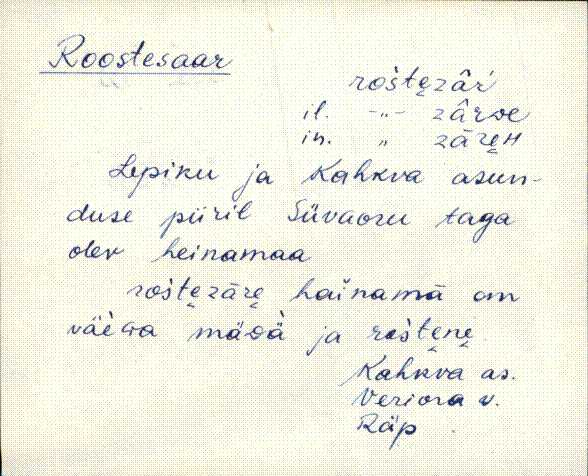 Roostesaar
rošte̬zâŕ
il. -„- zârde
in. „ zāre̬н
Lepiku ja Kahkva asun-
duse piiril Süvaoru taga
olev heinamaa
rošte̬zāre̬ haińamā om
ja rošte̬ne̬
Kahkva as.
Veriora v.
Räp.